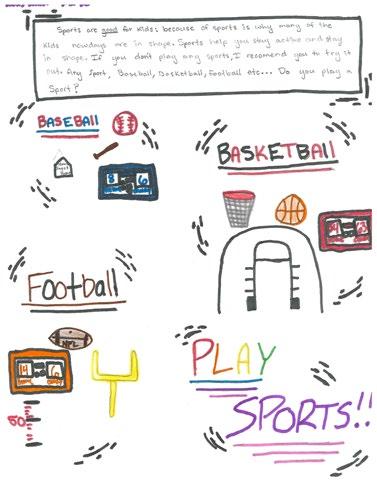 Sports are good for kids: because of sports is why many of the
kids nowdays are in shape. Sports help you stay active and stay
in shape. If you don't play any sports, I recomend you to try it
out. Any Sport, Baseball, Basketball, Football etc... Do you play a
Sport?
BASEBALL
BASKETBALL
Football
NFL
14
50
PLAY
SPORTS!!